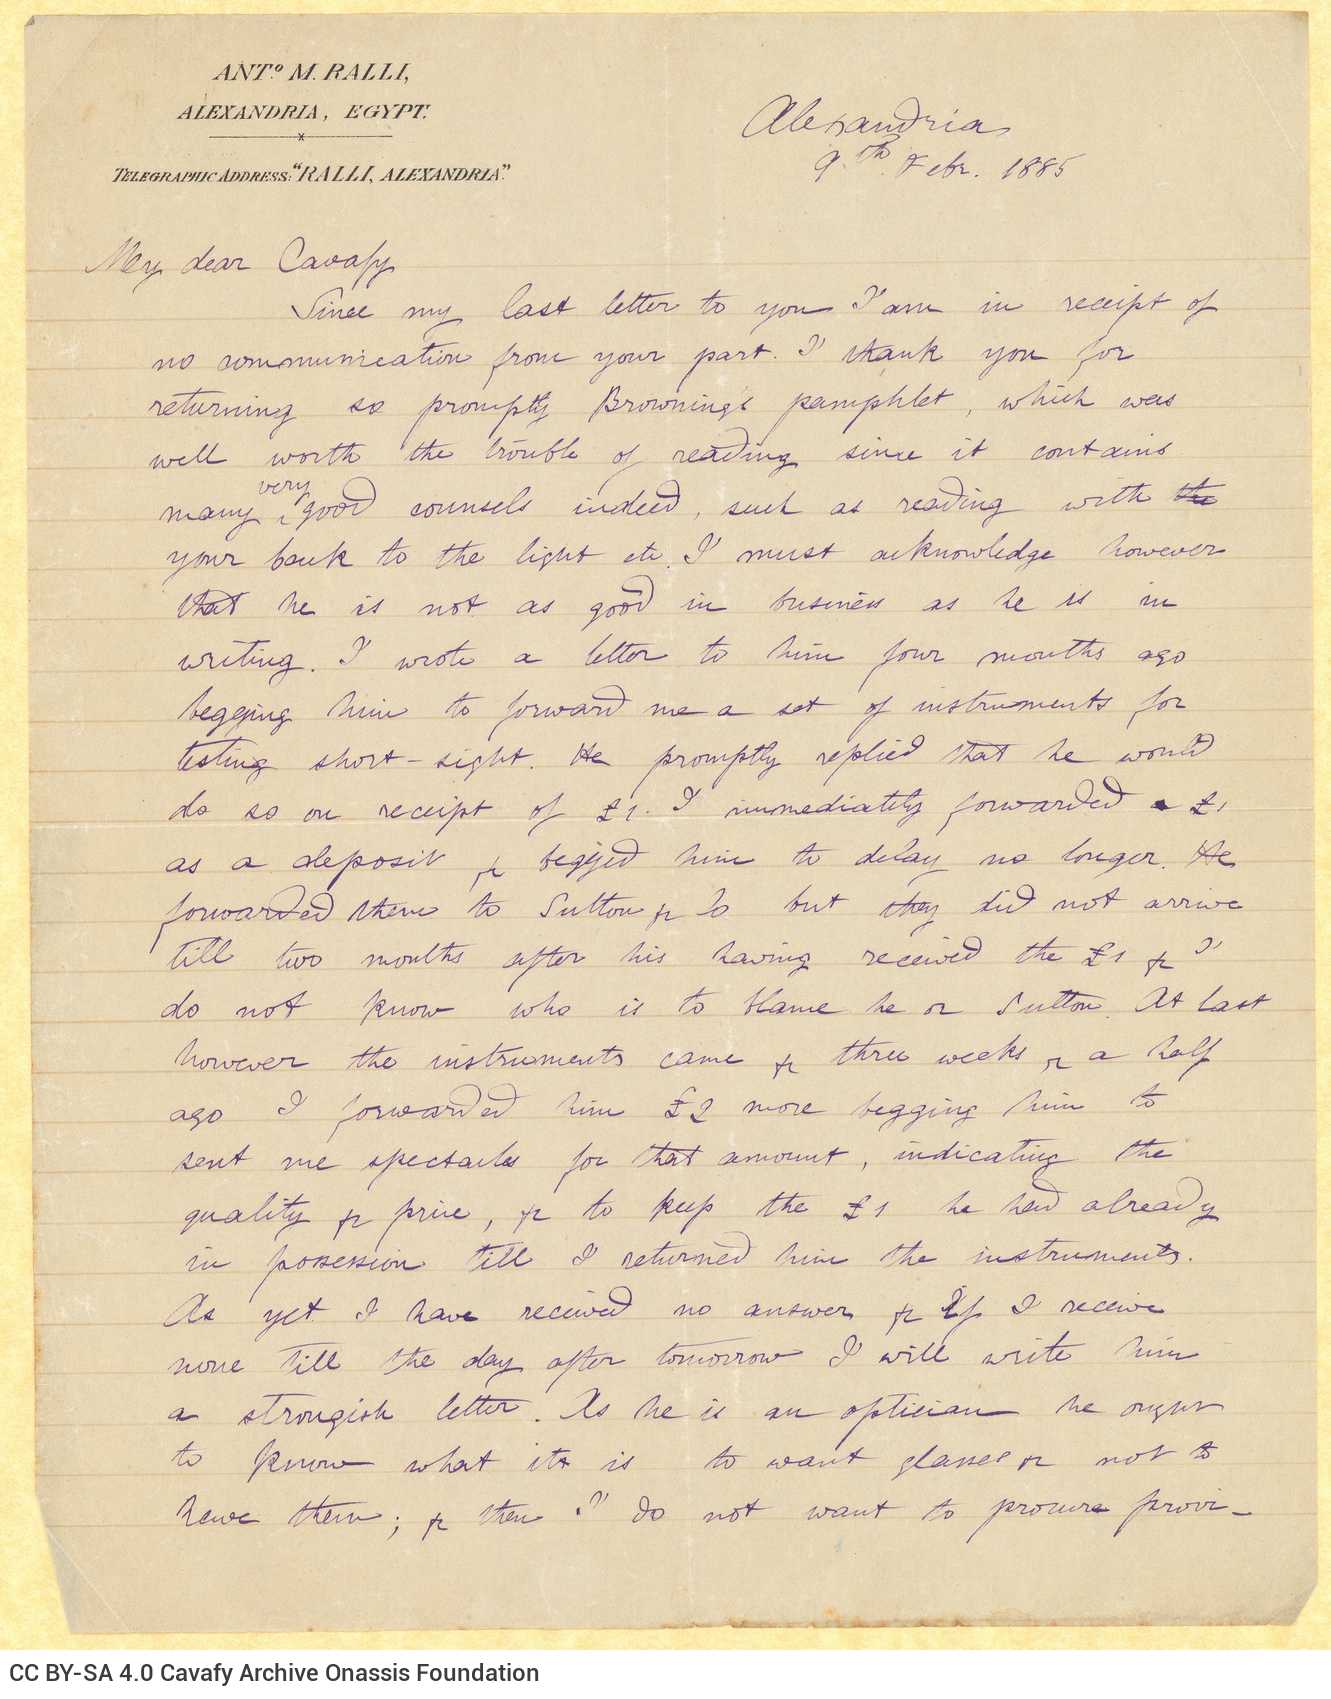 ANT.º M. RALLI,
ALEXANDRIA, EGYPT.
TELEGRAPHIC ADDRESS: "RALLI, ALEXANDRIA".
Alexandria
9th Febr. 1885
My dear Cavafy
Since my last letter to you I am in receipt of
no communication from your part. I thank you for
returning so promptly Browning's pamphlet, which was
well worth the trouble of reading since it contains
very
many good counsels indeed, such as reading with the
your back to the light etc. I must acknowledge however
that he is not as good in business as he is in
writing. I wrote a letter to him four months ago
begging him to forward me a set of instruments for
testing short-sight. He promptly replied that he would
do so on receipt of £1. I immediately forwarded a £1
as a deposit & begged him to delay no longer. He
forwarded them to Sutton & Co but they did not arrive
till two months after his having received the £1 & I
do not know who is to blame he or Sutton. At last
however the instruments came & three weeks & a half
ago I forwarded him £2 more begging him to
sent me spectacles for that amount, indicating the
quality & price, & to keep the £1 he had already
in possession till I returned him the instruments.
As yet I have received no answer & If I receive
none till the day after tomorrow I will write him
a strongish letter. As he is an optician he ought
to know what it is to want glasses & not to
have them; & then I do not want to procure provi-
CC BY-SA 4.0 Cavafy Archive Onassis Foundation